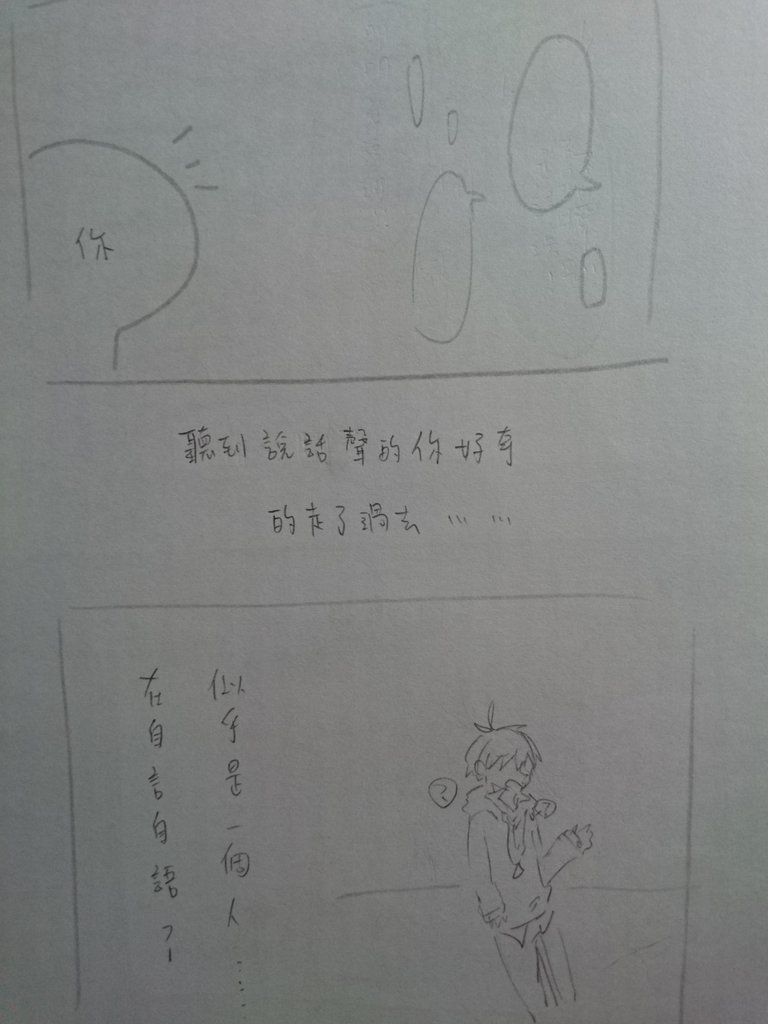 你
聽到說話聲的你好奇
的走了過去……
似乎是一個人……
在自言自語？
？
？